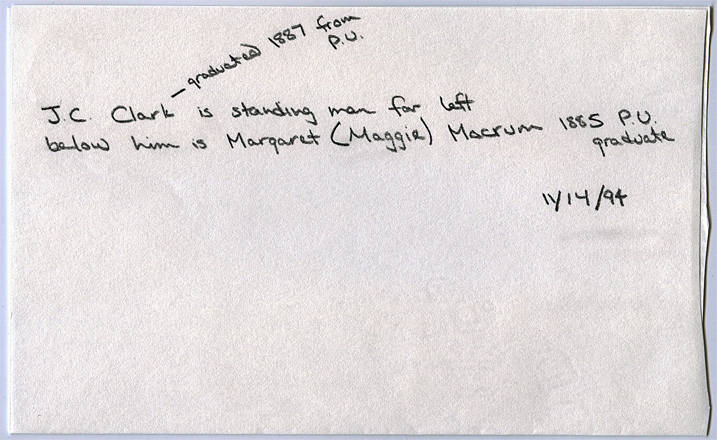 graduated 1887 from
P.U.
J.C. Clark is standing man far left
below him is Margaret (Maggie) Macrum 1885 P.U.
graduate
11/14/94